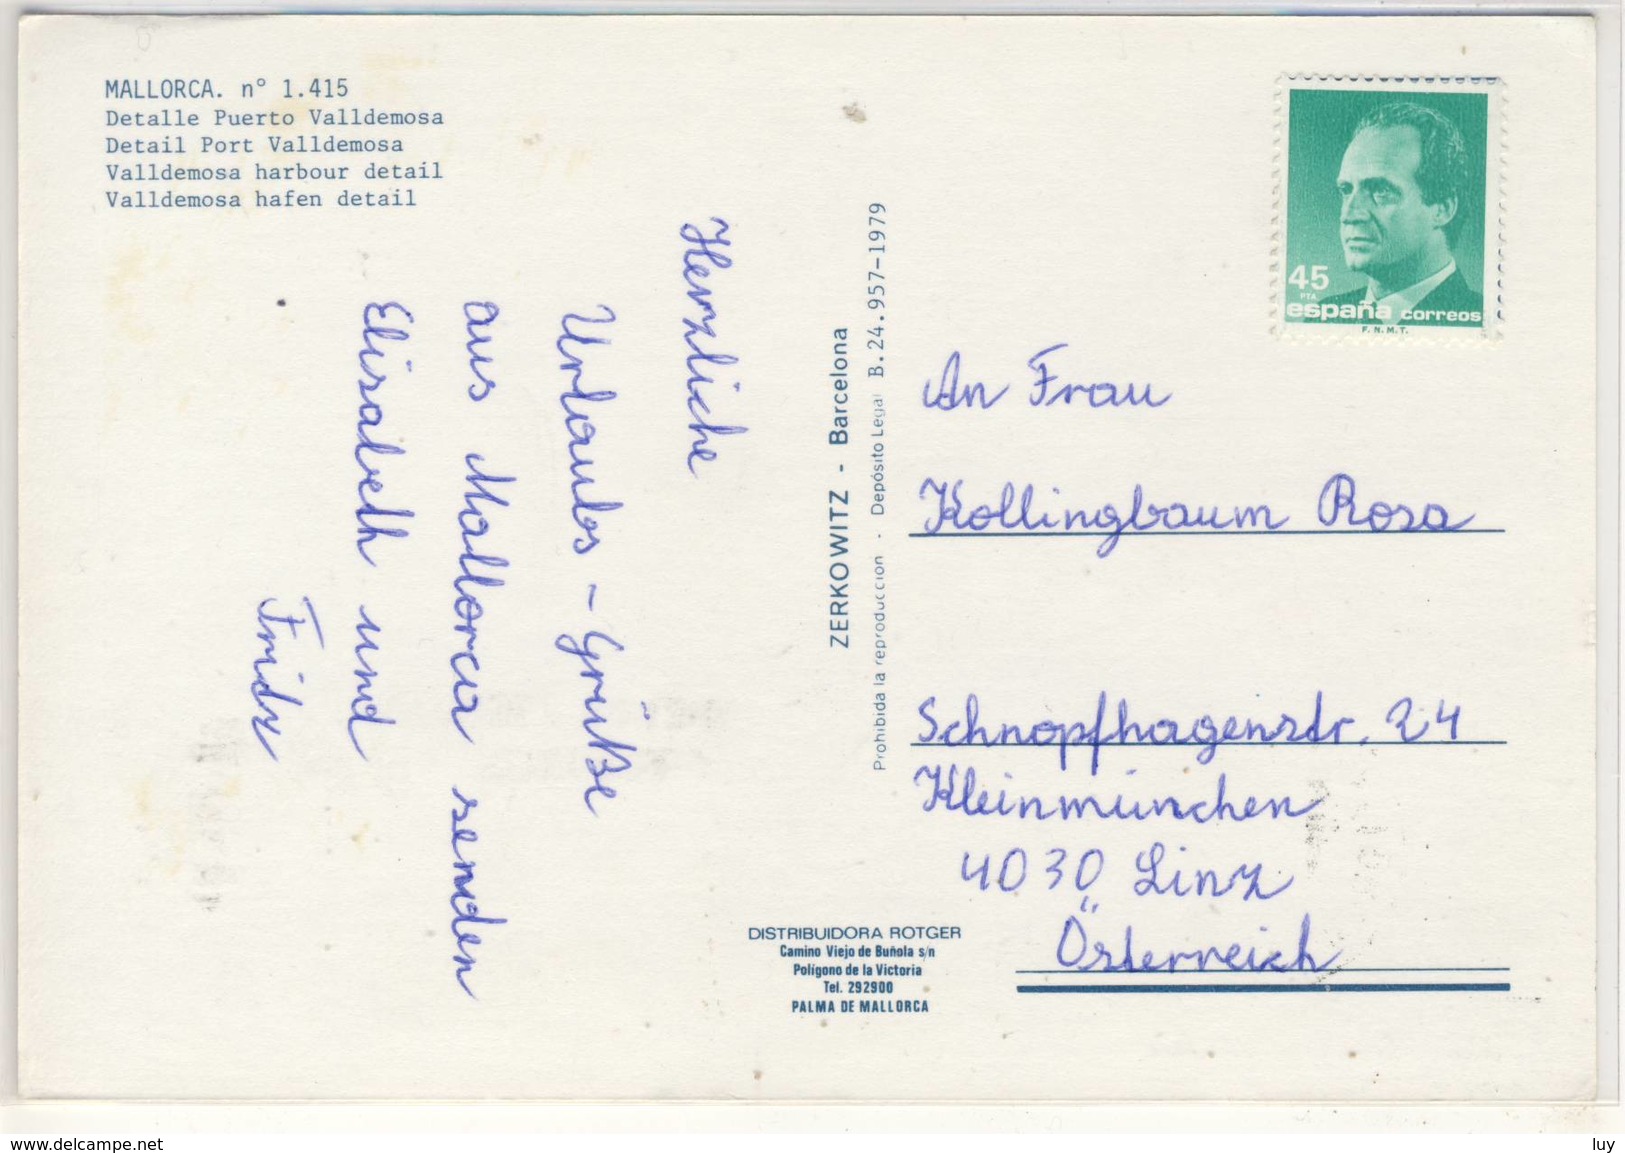 MALLORCA. nº 1.415
Detalle Puerto Valldemosa
Detail Port Valldemosa
Valldemosa harbour detail
Valldemosa hafen detail
Herzliche
Urlaubs-Grüße
aus Mallorca senden
Elisabeth und
Fridz
ZERKOWITZ - Barcelona
Prohibida la reproduccion - Depósito Legal B.24.957-1979
45
PTA
españa correos
F.N.M.T.
An Frau
Kollingbaum Rosa
Schnopfhagenstr. 24
Kleinmünchen
4030 Linz
Österreich
DISTRIBUIDORA ROTGER
Camino Viejo de Buñola s/n
Polígono de la Victoria
Tel. 292900
PALMA DE MALLORCA
www.delcampe.net
luy